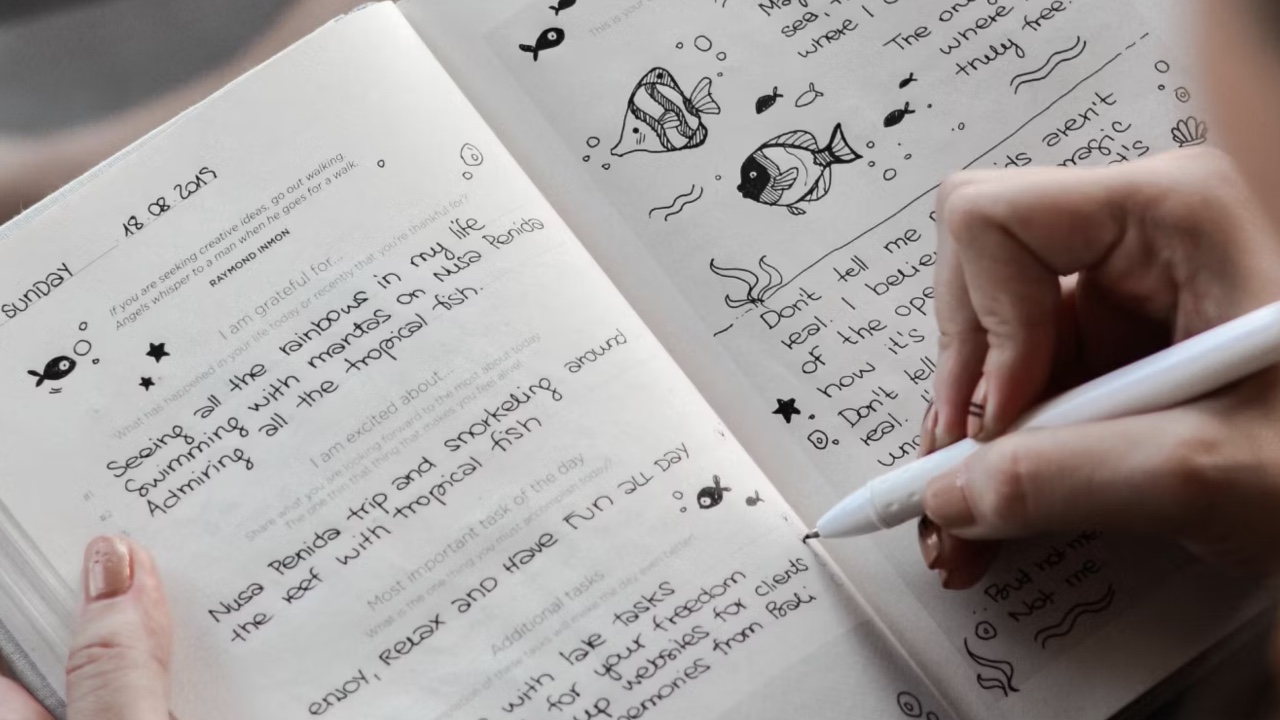 SUNDAY
18.08.2019
If you are seeking creative ideas, go out walking.
Angels whisper to a man when he goes for a walk.
RAYMOND INMON
I am grateful for...
What has happened in your life today or recently that you're thankful for?
#1 Seeing all the rainbows in my life
#2 Swimming with mantas on Nusa Penida
Admiring all the tropical fish.
I am excited about...
Share what you are looking forward to the most about today
The one thing that makes you feel alive
Nusa Penida trip and snorkeling around
the reef with tropical fish
Most important task of the day
What is the one thing you must accomplish today?
enjoy, Relax and Have Fun all Day
Additional tasks
will make the day even better
with late tasks
for your freedom
up websites for clients
memories from Bali
This is your
sea,
where I
The
where
truly free.
aren't
magic
Don't tell me
real. I
of the
how it's
Don't tell
real.
But not me.
Not me.